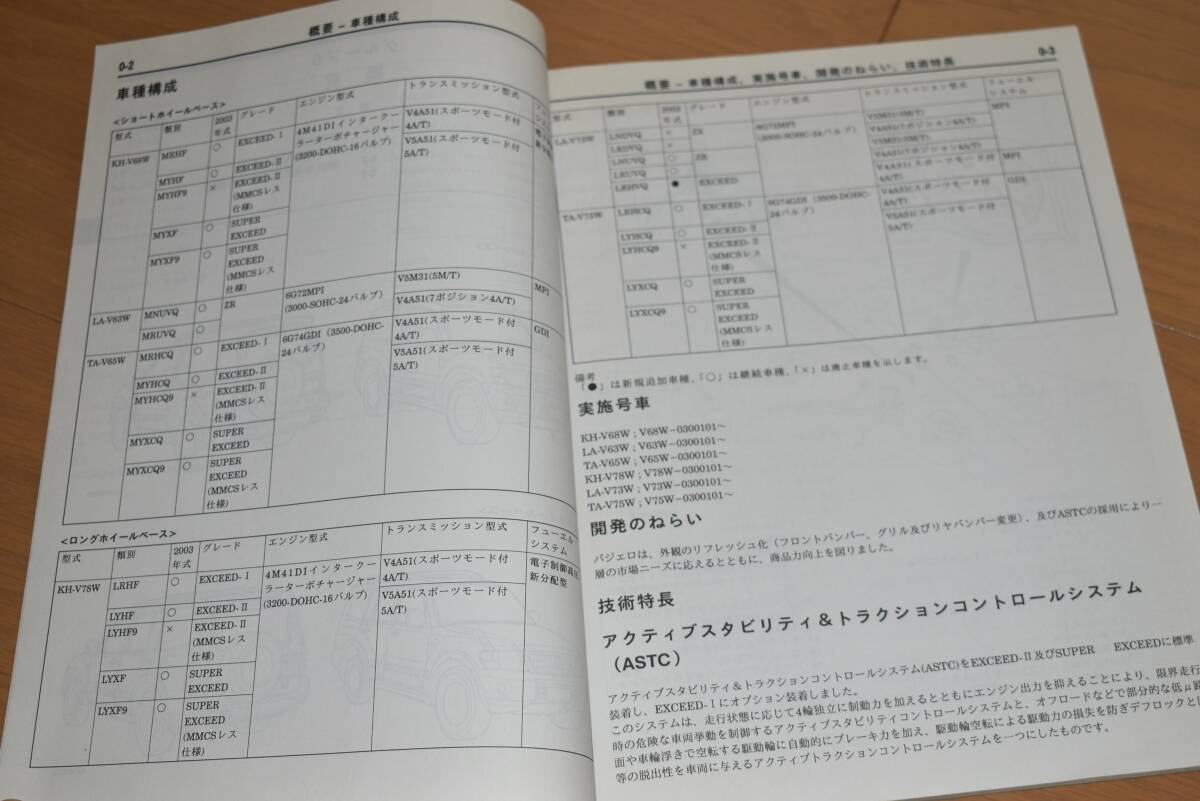 0-2
概要－車種構成
車種構成
<ショートホイールベース>
型式 類別 2003年式 グレード エンジン型式 トランスミッション型式
KH-V68W MRHF ○ EXCEED-Ⅰ 4M41DIインタークーラーターボチャージャー(3200-DOHC-16バルブ) V4A51(スポーツモード付4A/T)
V5A51(スポーツモード付5A/T)
MYHF ○ EXCEED-Ⅱ
MYHF9 × EXCEED-Ⅱ(MMCSレス仕様)
MYXF ○ SUPER EXCEED
MYXF9 ○ SUPER EXCEED(MMCSレス仕様)
LA-V63W MNUVQ ○ ZR 6G72MPI(3000-SOHC-24バルブ) V5M31(5M/T) MPI
MRUVQ ○ V4A51(7ポジション4A/T)
TA-V65W MRHCQ ○ EXCEED-Ⅰ 6G74GDI(3500-DOHC-24バルブ) V4A51(スポーツモード付4A/T) GDI
V5A51(スポーツモード付5A/T)
MYHCQ ○ EXCEED-Ⅱ
MYHCQ9 × EXCEED-Ⅱ(MMCSレス仕様)
MYXCQ ○ SUPER EXCEED
MYXCQ9 ○ SUPER EXCEED(MMCSレス仕様)
<ロングホイールベース>
型式 類別 2003年式 グレード エンジン型式 トランスミッション型式 フューエルシステム
KH-V78W LRHF ○ EXCEED-Ⅰ 4M41DIインタークーラーターボチャージャー(3200-DOHC-16バルブ) V4A51(スポーツモード付4A/T) 電子制御高圧
新分配型
V5A51(スポーツモード付5A/T)
LYHF ○ EXCEED-Ⅱ
LYHF9 × EXCEED-Ⅱ(MMCSレス仕様)
LYXF ○ SUPER EXCEED
LYXF9 ○ SUPER EXCEED(MMCSレス仕様)
0-3
概要－車種構成、実施号車、開発のねらい、技術特長
型式 類別 2003年式 グレード エンジン型式 トランスミッション型式 フューエルシステム
LA-V73W LNDVQ × ZR 6G72MPI(3000-SOHC-24バルブ) V5M31(5M/T) MPI
LRDVQ × V4A51(7ポジション4A/T)
LNUVQ ○ ZR V5M31(5M/T)
LRUVQ ○ V4A51(7ポジション4A/T)
LRHVQ ● EXCEED V4A51(スポーツモード付4A/T) MPI
TA-V75W LRHCQ ○ EXCEED-Ⅰ 6G74GDI(3500-DOHC-24バルブ) V4A51(スポーツモード付4A/T) GDI
V5A51(スポーツモード付5A/T)
LYHCQ ○ EXCEED-Ⅱ
LYHCQ9 × EXCEED-Ⅱ(MMCSレス仕様)
LYXCQ ○ SUPER EXCEED
LYXCQ9 ○ SUPER EXCEED(MMCSレス仕様)
備考
「●」は新規追加車種、「○」は継続車種、「×」は廃止車種を示します。
実施号車
KH-V68W ; V68W-0300101～
LA-V63W ; V63W-0300101～
TA-V65W ; V65W-0300101～
KH-V78W ; V78W-0300101～
LA-V73W ; V73W-0300101～
TA-V75W ; V75W-0300101～
開発のねらい
パジェロは、外観のリフレッシュ化（フロントバンパー、グリル及びリヤバンパー変更）、及びASTCの採用により一
層の市場ニーズに応えるとともに、商品力向上を図りました。
技術特長
アクティブスタビリティ＆トラクションコントロールシステム
（ASTC）
アクティブスタビリティ＆トラクションコントロールシステム(ASTC)をEXCEED-Ⅱ及びSUPER EXCEEDに標準
装着し、EXCEED-Ⅰにオプション装着しました。
このシステムは、走行状態に応じて4輪独立に制動力を加えるとともにエンジン出力を抑えることにより、限界走行
時の危険な車両挙動を制御するアクティブスタビリティコントロールシステムと、オフロードなどで部分的な低μ路
面や車輪浮きで空転する駆動輪に自動的にブレーキ力を加え、駆動輪空転による駆動力の損失を防ぎデフロックと同
等の脱出性を車両に与えるアクティブトラクションコントロールシステムを一つにしたものです。